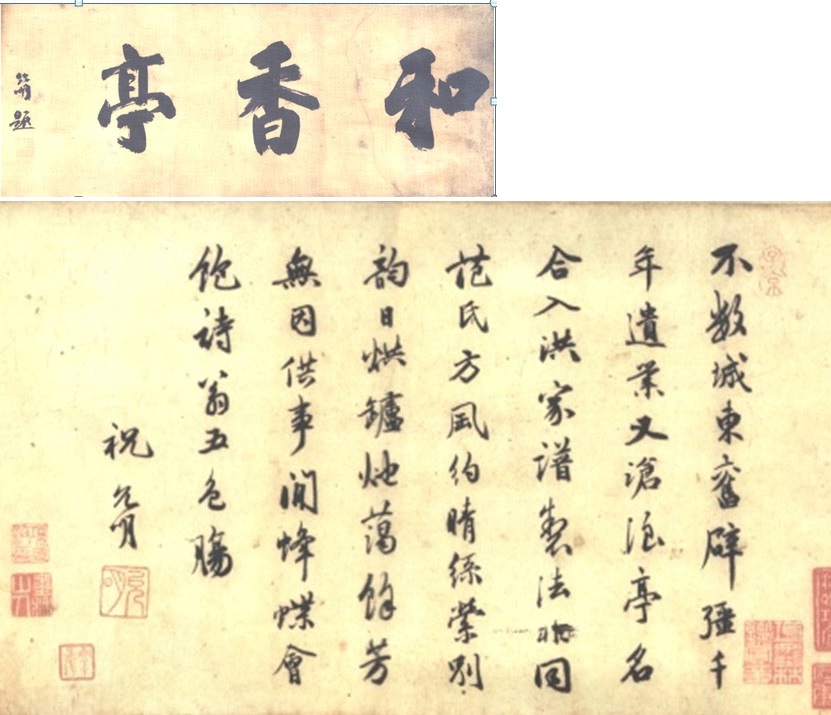 和香亭
題
不数城東舊辟疆千
年遺業又滄浪亭名
合入洪家譜製法同
范氏方風約晴絲縈別
韵日烘鑪灺藹餘芳
無因供事閒蜂蝶會
飽詩翁五色腸
祝允明